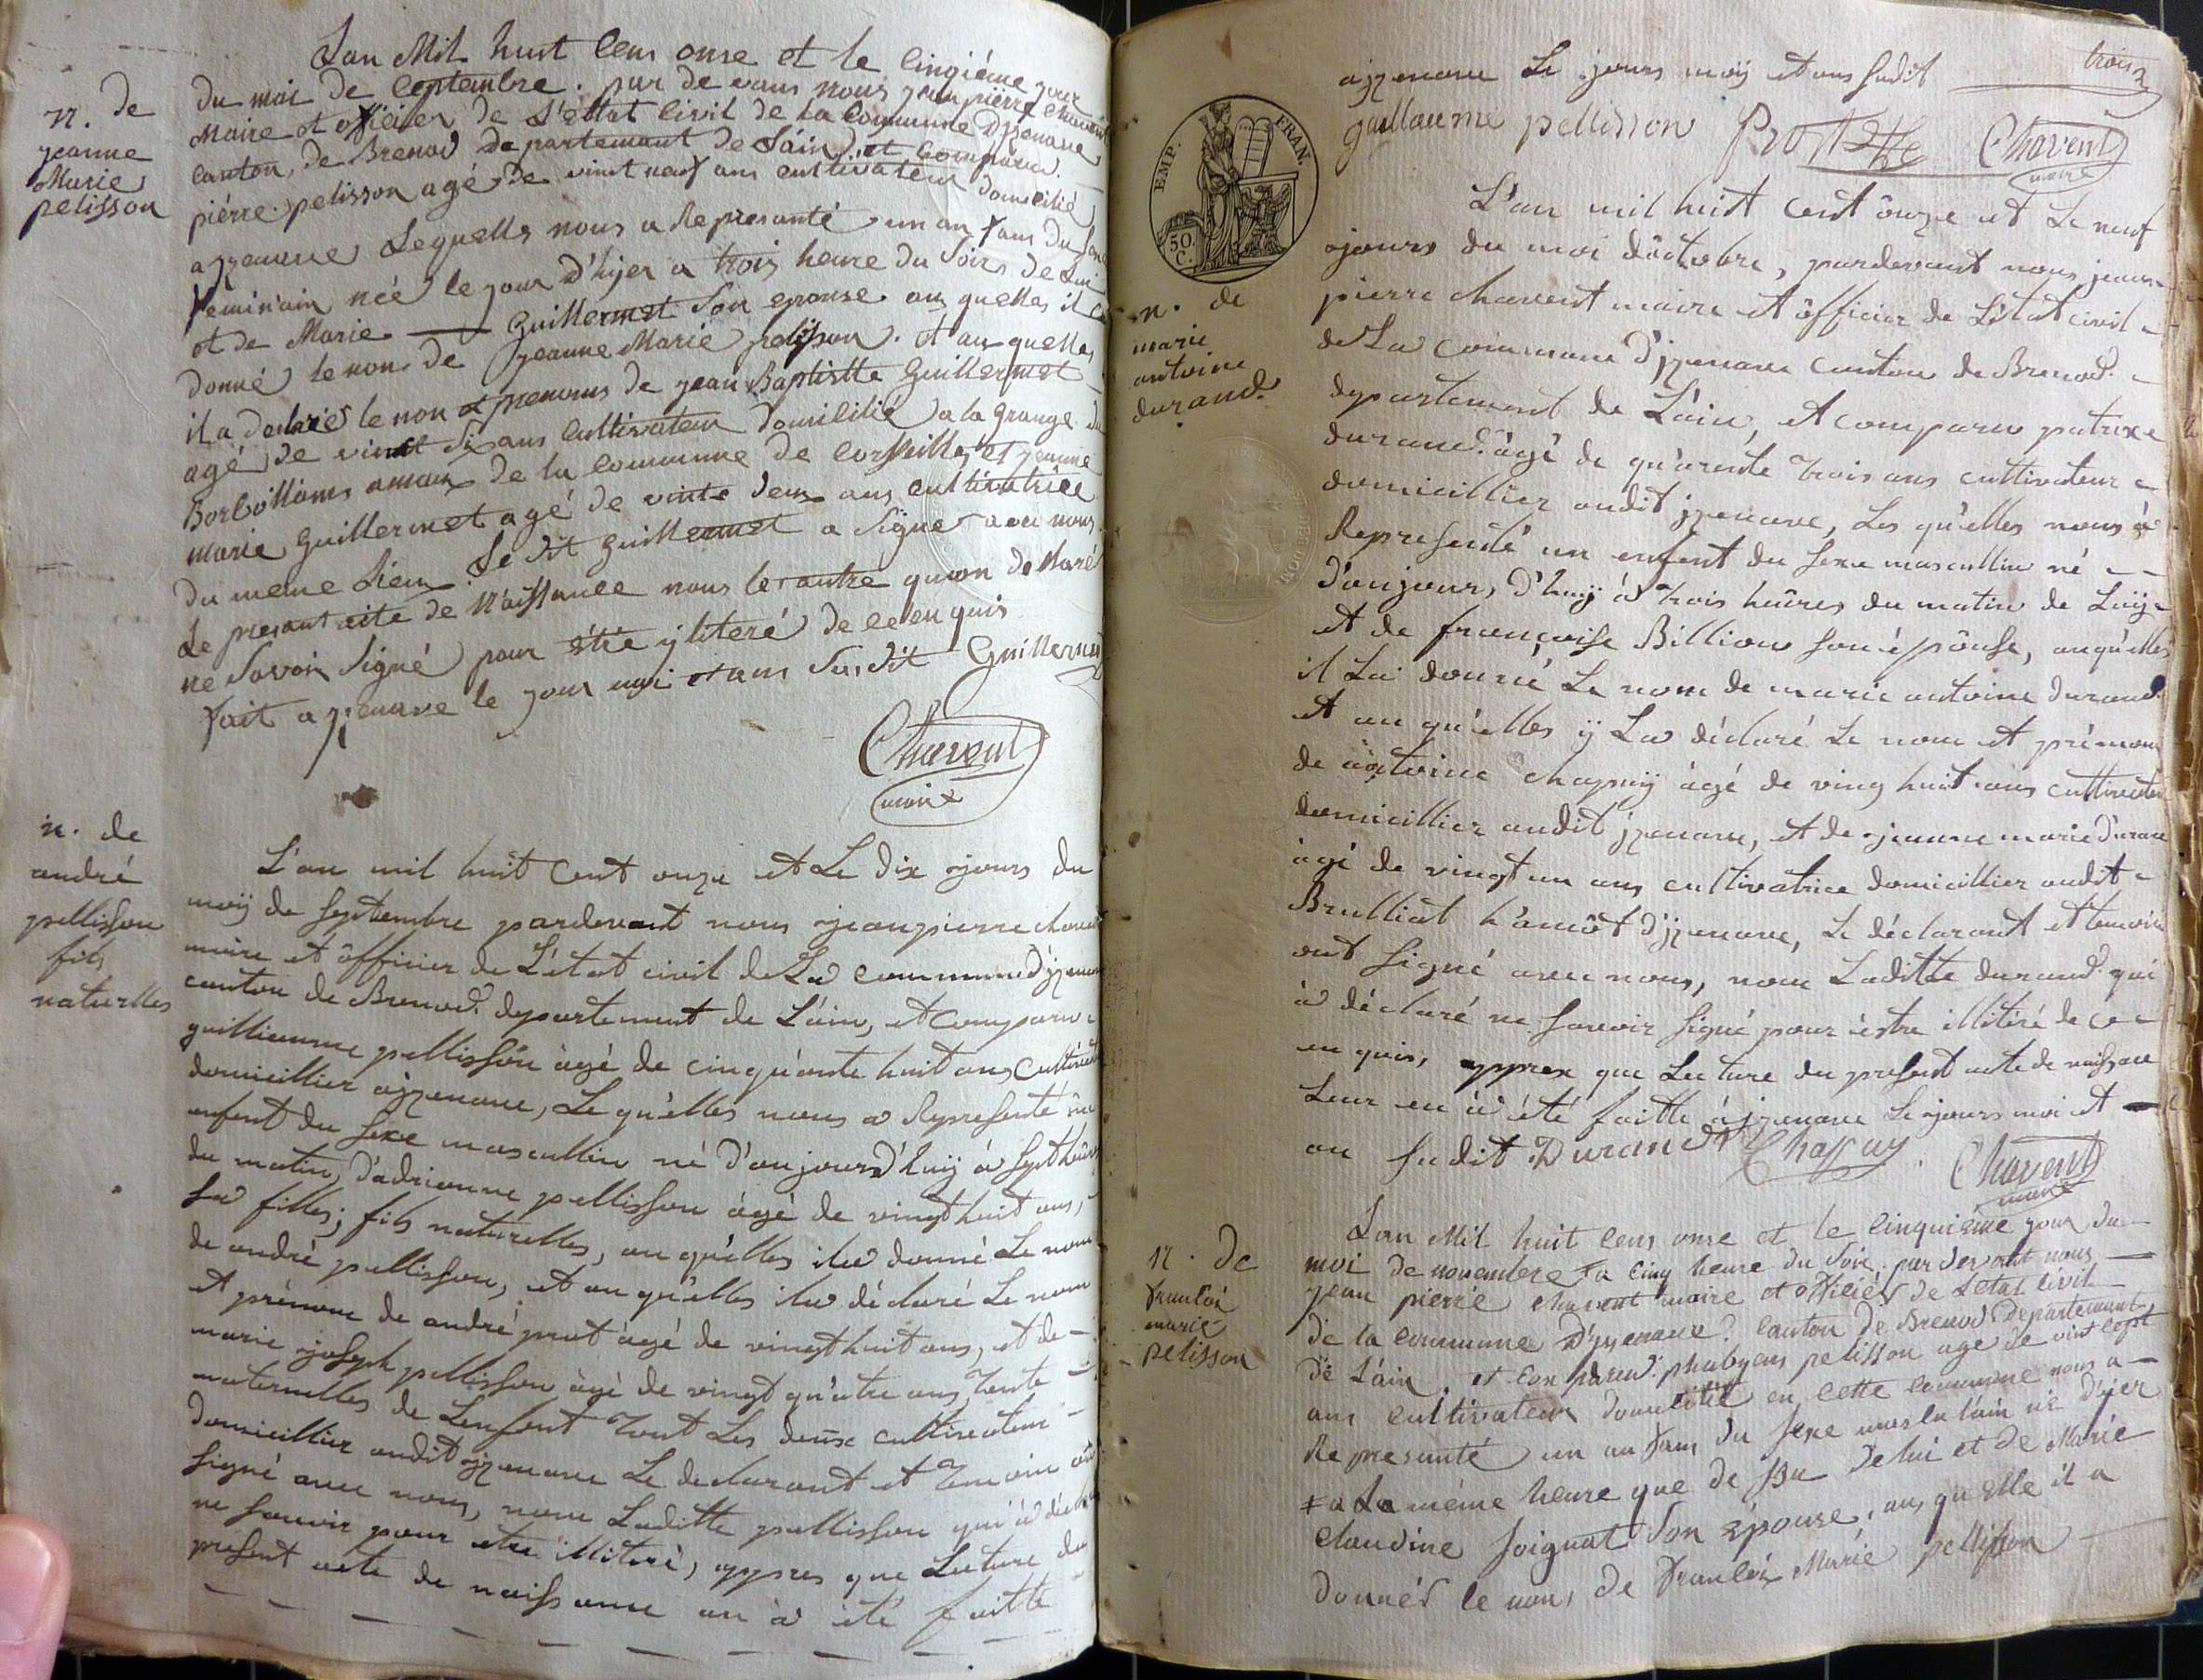 n. de
jeanne
Marie
pelisson
Lan Mil huit Cens onse et le Cinqiéme jour
du moi de Ceptembre. par de vans nous jean pierre Chavent
Maire et officier de L'ettat Civil de la Commune Djzenave
Canton, de Brenod departemant de Lain, et Comparu
piérre pelisson agé de vint neuf ans cultivateur domicilié
a jzenave Lequelle nous a Represanté un an fans du sexe
feminain néé le jour D'hijer a trois heure du Soirs de Lui
et de Marie Guillermet Son epouse au quelles il a
donné le non de jeanne Marie pelisson. et au quelles
il a declaré le non et prenoms de jean Baptistte Guillermet
agé de vint si ans Cultivateur domicilié a la grange du
de la Commune de Corselles et jeanne
marie Guillermet agé de vinte deux ans cultivatrice
du meme Lieu. Le dit Guillermet a Signé avec nous
Le presant acte de Naissance nous les autre quion declaré
ne Savoir Signé pour étre ÿliteré de ce en quis
fait a jzenave le jour moi et ans Susdit Guillermet
Chavent
maire
n. de
andré
pellisson
fils
naturelles
L'an mil huit Cent onze et Le dix ojours du
moÿ de septembre pardevant nous jean pierre chavent
maire et ôfficier de L'état civil de La commune d'jzenave
canton de Brenod departement de L'ain, et comparu
guillieaume pellisson âgé de cinqu'ante huit ans Cultivateur
domicillier ajzenave, Le qu'elles nous a Representé un
enfent du sexe mascullin né d'aujourd'huÿ à sept heures
du matin, d'adrienne pellisson âgé de vingt huit ans,
sa filles; fils naturelles, au qu'elles ila donné Le nom
de andré pellisson, et au qu'elles ila déclaré Le nom
et prénom de andré prost âgé de vingt huit ans, et de
marie joseph pellisson âgé de vingt qu'atre ans, tente
maternelles de Lenfent tout Les deux cultivateur
domicillier audit jzenave Le declarant et temoin ont
signé avec nous, nom Laditte pellisson qui à déclaré
ne savoir pour etre illiteré, appres que Lecture du
present acte de naissance an à été faitte
trois
ajzenave Le jours moÿ et ans sudit
guillaume pellisson Prost Chavent
maire
EMP. FRAN.
50. C.
n. de
marie
antoine
durand.
L'an mil huit cent ônze et Le neuf
ojours du moi dôctobre, pardevant nous jean
pierre chavent maire et ôfficier de L'état civil
de La commune d'jzenave canton de Brenod.
departement de L'ain, et comparu patrice
durand. âgé de qu'arente trois ans cultivateur
domicillier audit jzenave, Les qu'elles nous à
Representé un enfent du sexe mascullin né
d'aujours d'huÿ à trois heûres du matin de Luÿ
et de françoise Billion son épouse, auqu'elles
il La donné Le nom de marie antoine durand.
et au qu'elles ÿ La déclaré Le nom et prénom
de antoine chapuÿ âgé de ving huit ans cultivateur
domicillier audit jzenave, et de jeanne marie durand
âgé de vingt un ans cultivatrice domicillier audit
Brulliat h'amôt d'jzenave, Le déclarant et temoin
ont signé avec nous, nom Laditte durand. qui
à déclaré ne savoir signé pour estre illitéré de ce
en quis, appres que Lecture du present acte de naissance
Leur en à été faitte à jzenave Le jours moi et
an sudit Durand Chapuy Chavent
maire
n. de
francoi
marie
pelisson
Lan Mil huit Cens onse et le Cinquiéme jour du
moi de novembre a Cinq heure du Soir. par devant nous
jean pierre chavent maire et officiér de Létat Civil
de la Commune D'jzenave Canton de Brenod departemant
de Lain, et Conparu pelisson age de vint Cept
ans Cultivateur domicilié en Cette Commune nous a
Represanté un an fans du Sexe masculain né D'ijer
a La méme heure que de Su De lui et de Marie
Claudine Joignat Son épouse, au quelle il a
donnér le non, de francois Marie pellisson